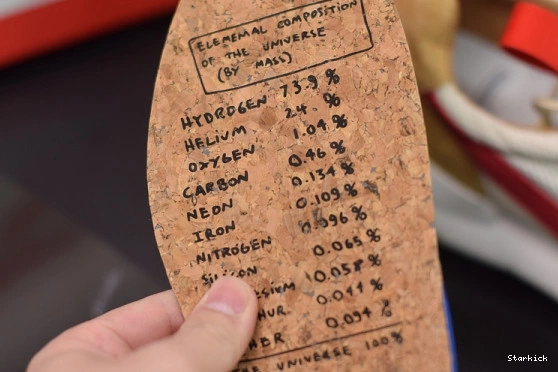 ELEMENAL COMPOSITION
OF THE UNIVERSE
(BY MASS)
HYDROGEN 73.9 %
HELIUM 24. %
OXYGEN 1.04 %
CARBON 0.46 %
NEON 0.134 %
IRON 0.109 %
NITROGEN 0.096 %
SILICON 0.065 %
SSIUM 0.058 %
HUR 0.044 %
HER 0.094 %
HE UNIVERSE 100%
Starkick